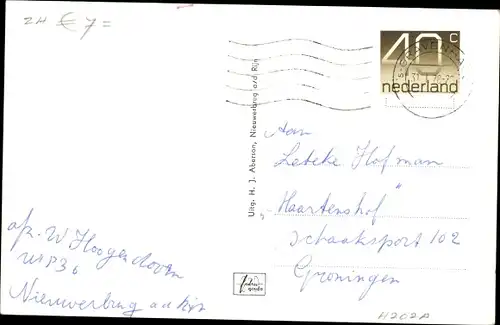 ZH € 7 =
40 c
nederland
Uitg. H. J. Aberson, Nieuwerbrug a/d. Rijn
Aan
Lebeke Hofman
„Haartenshof"
Schaaksport 102
Groningen
afz. W Hoogendoorn
Nieuwerbrug a.d. Rijn
H202A